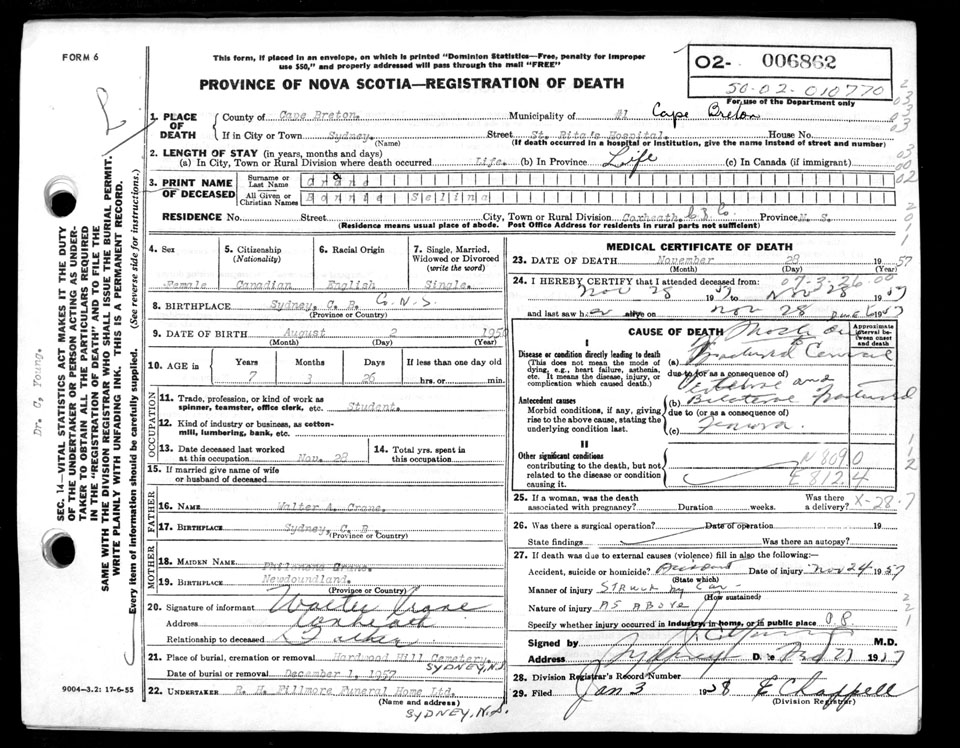 FORM 6
This form, if placed in an envelope, on which is printed "Dominion Statistics—Free, penalty for improper
use $50," and properly addressed will pass through the mail "FREE"
PROVINCE OF NOVA SCOTIA—REGISTRATION OF DEATH
02- 006862
50-02-010770
For use of the Department only
1. PLACE OF DEATH
County of Cape Breton. Municipality of #1 Cape Breton
If in City or Town Sydney. Street St. Rita's Hospital. House No.
(Name) (If death occurred in a hospital or institution, give the name instead of street and number)
2. LENGTH OF STAY (in years, months and days)
(a) In City, Town or Rural Division where death occurred Life. (b) In Province Life (c) In Canada (if immigrant)
3. PRINT NAME OF DECEASED
Surname or Last Name
All Given or Christian Names Bonnie Selina
RESIDENCE No. Street City, Town or Rural Division Coxheath. C.B. Co. Province N. S.
(Residence means usual place of abode. Post Office Address for residents in rural parts not sufficient)
4. Sex
Female
5. Citizenship
(Nationality)
Canadian
6. Racial Origin
English
7. Single, Married,
Widowed or Divorced
(write the word)
Single.
8. BIRTHPLACE Sydney, C. B. Co. N.S.
(Province or Country)
9. DATE OF BIRTH August 2 1950
(Month) (Day) (Year)
10. AGE in
Years Months Days If less than one day old
7 3 26 hrs. or min.
OCCUPATION
11. Trade, profession, or kind of work as
spinner, teamster, office clerk, etc. Student.
12. Kind of industry or business, as cotton-
mill, lumbering, bank, etc.
13. Date deceased last worked
at this occupation Nov. 28
14. Total yrs. spent in
this occupation
15. If married give name of wife
or husband of deceased
FATHER
16. NAME Walter A. Crane.
17. BIRTHPLACE Sydney, C. B.
(Province or Country)
MOTHER
18. MAIDEN NAME Crane.
19. BIRTHPLACE Newfoundland.
(Province or Country)
20. Signature of informant Walter Crane
Address Coxheath
Relationship to deceased Father
21. Place of burial, cremation or removal Hardwood Hill Cemetery.
SYDNEY, N.S.
Date of burial or removal December 1, 1957
22. UNDERTAKER R. H. Fillmore Funeral Home Ltd.
(Name and address)
SYDNEY, N.S.
9004—3.2: 17-6-55
MEDICAL CERTIFICATE OF DEATH
23. DATE OF DEATH November 28 1957
(Month) (Day) (Year)
24. I HEREBY CERTIFY that I attended deceased from:
Nov 28 1957 to Nov 28 1957
and last saw her alive on Nov 28 1957
CAUSE OF DEATH
Approximate interval between onset and death
I
Disease or condition directly leading to death
(This does not mean the mode of
dying, e.g., heart failure, asthenia,
etc. It means the disease, injury, or
complication which caused death.)
(a) Fractured Cervical
due to (or as a consequence of)
Vertebrae and
Antecedent causes
Morbid conditions, if any, giving
rise to the above cause, stating the
underlying condition last.
(b) Bilateral Fractured
due to (or as a consequence of)
(c) Femora.
II
Other significant conditions
contributing to the death, but not
related to the disease or condition
causing it.
N8090
E8124
25. If a woman, was the death
associated with pregnancy? Duration weeks. Was there
a delivery? X-28-7
26. Was there a surgical operation? Date of operation 19
State findings Was there an autopsy?
27. If death was due to external causes (violence) fill in also the following:
Accident, suicide or homicide? Accident Date of injury Nov 24 1957
(State which)
Manner of injury Struck by Car
(How sustained)
Nature of injury AS ABOVE
Specify whether injury occurred in industry, in home, or in public place
Signed by M.D.
Address Sydney Date 1957
28. Division Registrar's Record Number
29. Filed Jan 3 1958 E Chappell
(Division Registrar)
SEC. 14—VITAL STATISTICS ACT MAKES IT THE DUTY
OF THE UNDERTAKER OR PERSON ACTING AS UNDER-
TAKER TO OBTAIN ALL THE PARTICULARS REQUIRED
IN THE "REGISTRATION OF DEATH" AND TO FILE THE
SAME WITH THE DIVISION REGISTRAR WHO SHALL ISSUE THE BURIAL PERMIT.
WRITE PLAINLY WITH UNFADING INK. THIS IS A PERMANENT RECORD.
Every item of information should be carefully supplied. (See reverse side for instructions.)
Dr. C, Young.